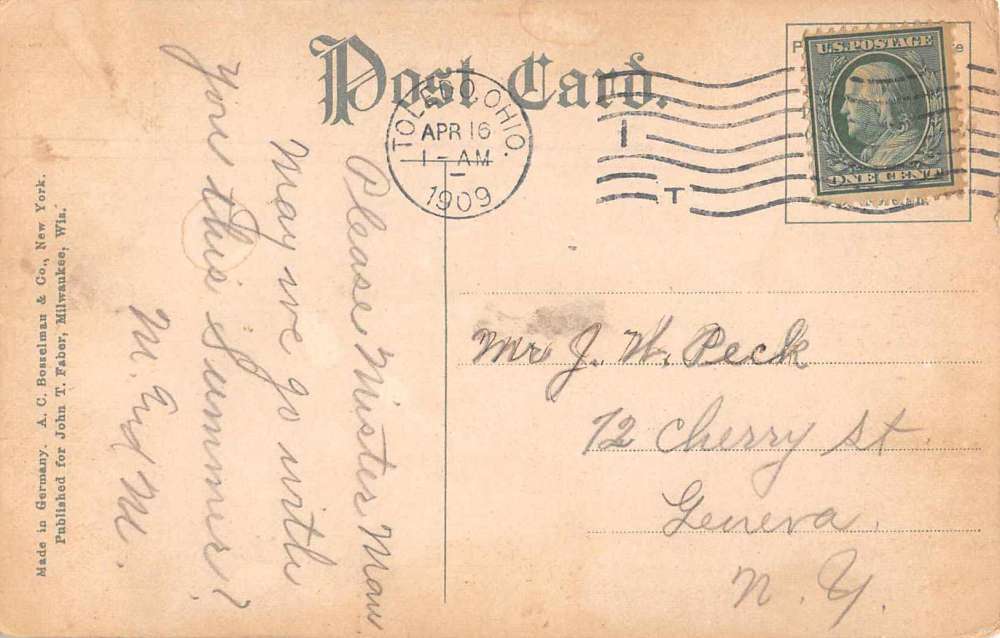 Post Card.
TOLEDO, OHIO.
APR 16
1-AM
1909
I
T
U.S. POSTAGE
ONE CENT
Please Mister Man
May we go with
you this summer?
M. and M.
Mr J. W. Peck
72 Cherry St.
Geneva,
N. Y.
Made in Germany. A. C. Bosselman & Co., New York.
Published for John T. Faber, Milwaukee, Wis.